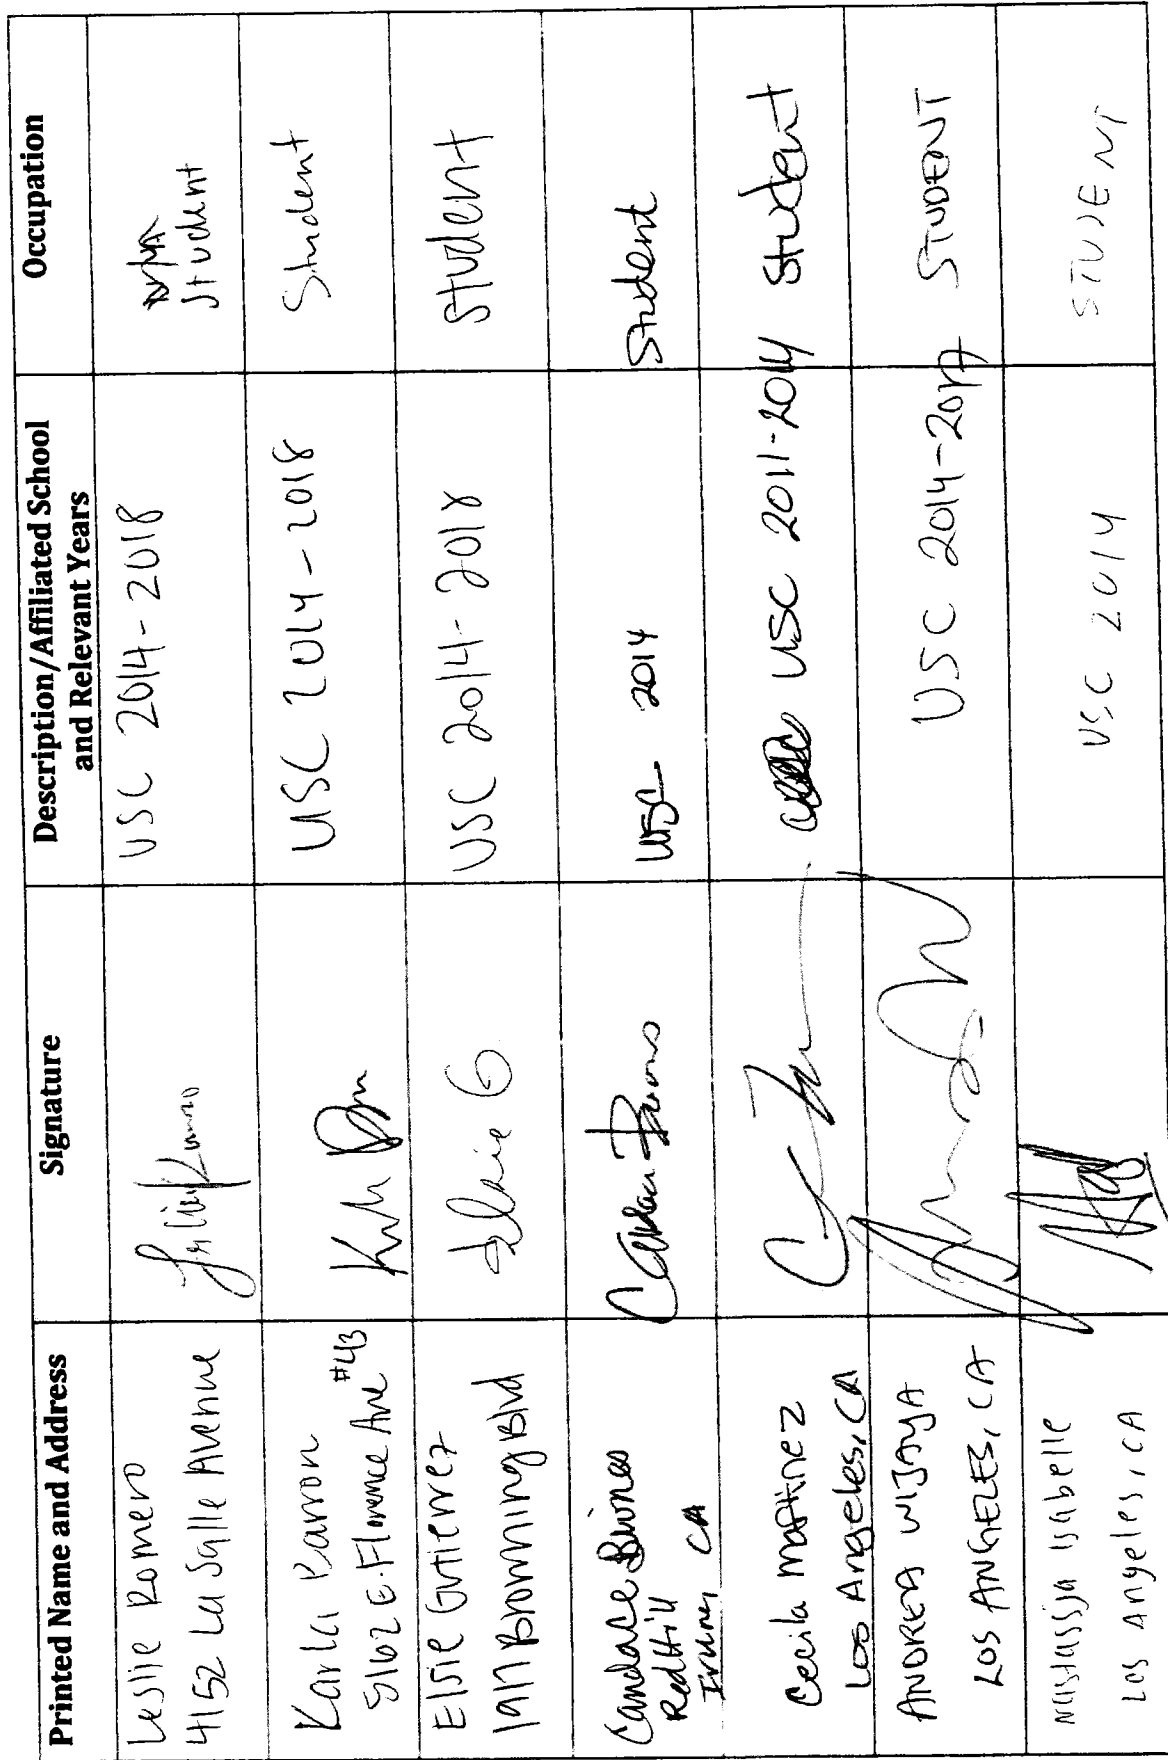 Printed Name and Address
Signature
Description/Affiliated School
and Relevant Years
Occupation
Leslie Romero
4152 La Salle Avenue
USC 2014-2018
Student
Karla
5162 E. Florence Ave #43
USC 2014-2018
Student
Elsie Gutierrez
Browning Blvd
USC 2014-2018
Student
Candace
Redhill
Irvine, CA
USC 2014
Student
Cecila Martinez
Los Angeles, CA
USC 2011-2014
Student
ANDREA WIJAYA
LOS ANGELES, CA
USC 2014-2017
STUDENT
Nastassja Isabelle
Los Angeles, CA
USC 2014
STUDENT